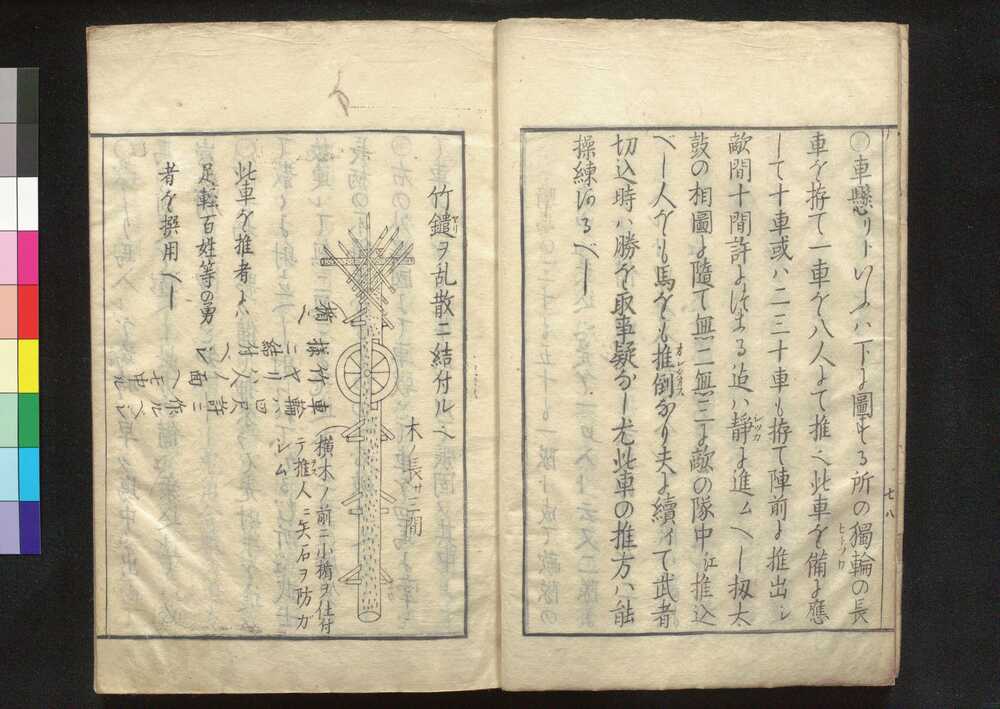 車懸リトいふハ下に圖する所の獨輪の長
ヒトツワ
車を拵て一車を八人にて推へ此車を備に應
して十車或ハ二三十車も拵て陣前に推出シ
敵間十間許につまる迠ハ静に進ムへし扨太
シツカ
鼓の相圖に隨て無二無三に敵の隊中江推込
べし人をも馬をも推倒なり夫に續ィて武者
オシタオス
切込時ハ勝を取事疑なし尤此車の推方ハ能
操練あるべし
七八
竹鑓ヲ乱散ニ結付ルへ
ヤリ
木ノ長サ三間
横木ノ前ニ小楯ヲ仕付
テ推人ニ矢石ヲ防ガ
オス
シム
車輪ハ四尺許ニ作ルヘシ
此車を推者にハ
足軽百姓等の勇
者を撰用へし